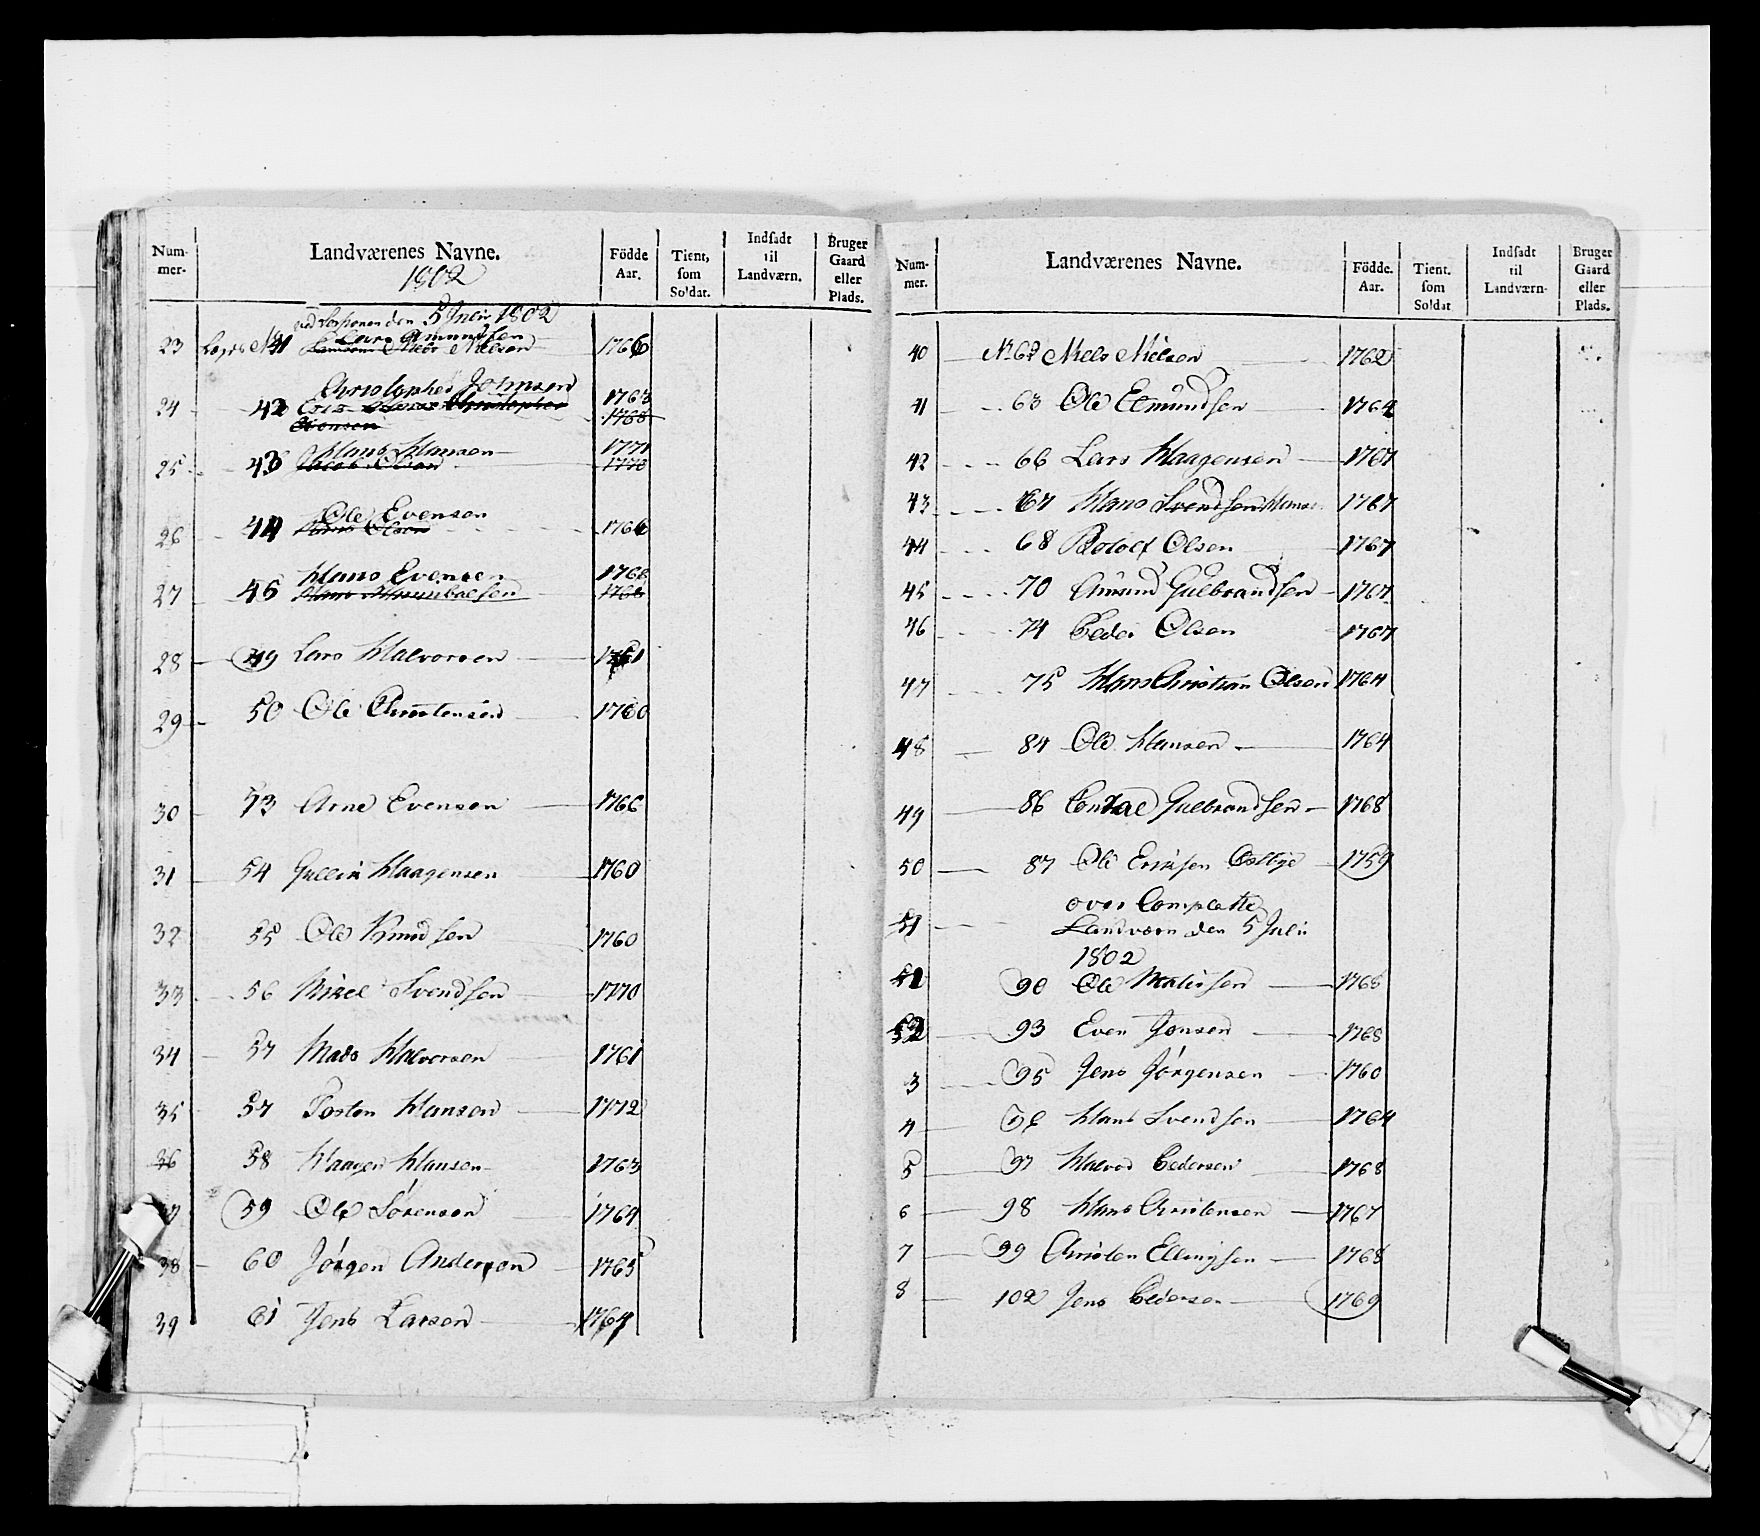 Num-
mer.
Landværenes Navne.
1802
Födde
Aar.
Tient,
som
Soldat.
Indsadt
til
Landværn.
Bruger
Gaard
eller
Plads.
den 5 Julii 1802
23 Lægds No 41 Lars Amundsen 1766
Niels Nielsen
24 42 Christopher Johnsen 1763
Christopher 1768
25 43 Hans Hansen 1771
1770
26 44 Ole Evensen 1766
Hans Olsen
27 45 Hans Evensen 1766
Hans 1768
28 49 Lars Halvorsen 1761
29 50 Ole Christensen 1760
30 53 Arne Evensen 1766
31 54 Gullik Haagensen 1760
32 55 Ole Knudsen 1760
33 56 Mikel Svendsen 1770
34 57 Mads Halvorsen 1761
35 57 Torsten Hansen 1772
36 58 Haagen Hansen 1763
59 Ole Sörensen 1764
38 60 Jörgen Andersen 1765
39 61 Jens Larsen 1764
Num-
mer.
Landværenes Navne.
Födde.
Aar.
Tient.
som
Soldat
Indsadt
til
Landværn-
Bruger
Gaard
eller
Plads.
40 No 62 Niels Nielsen 1762
41 63 Ole Edmundsen 1764
42 66 Lars Haagensen 1767
43 67 Hans Svendsen 1767
44 68 Rololf Olsen 1767
45 70 Amund Gulbrandsen 1767
46 74 Peder Olsen 1767
47 75 Hans Christian Olsen 1764
48 84 Ole Hansen 1764
49 86 Gulbrandsen 1768
50 87 Ole Eriksen Østbye 1759
over Complette
51 Landværn den 5 Julii
1802
51 90 Ole Madsen 1768
52 93 Even Jonsen 1768
3 95 Jens Jörgensen 1760
4 96 Hans Svendsen 1764
5 97 Halvor Pedersen 1768
6 98 Hans Christensen 1767
7 99 Christen Ellingsen 1768
8 102 Jens Pedersen 1769